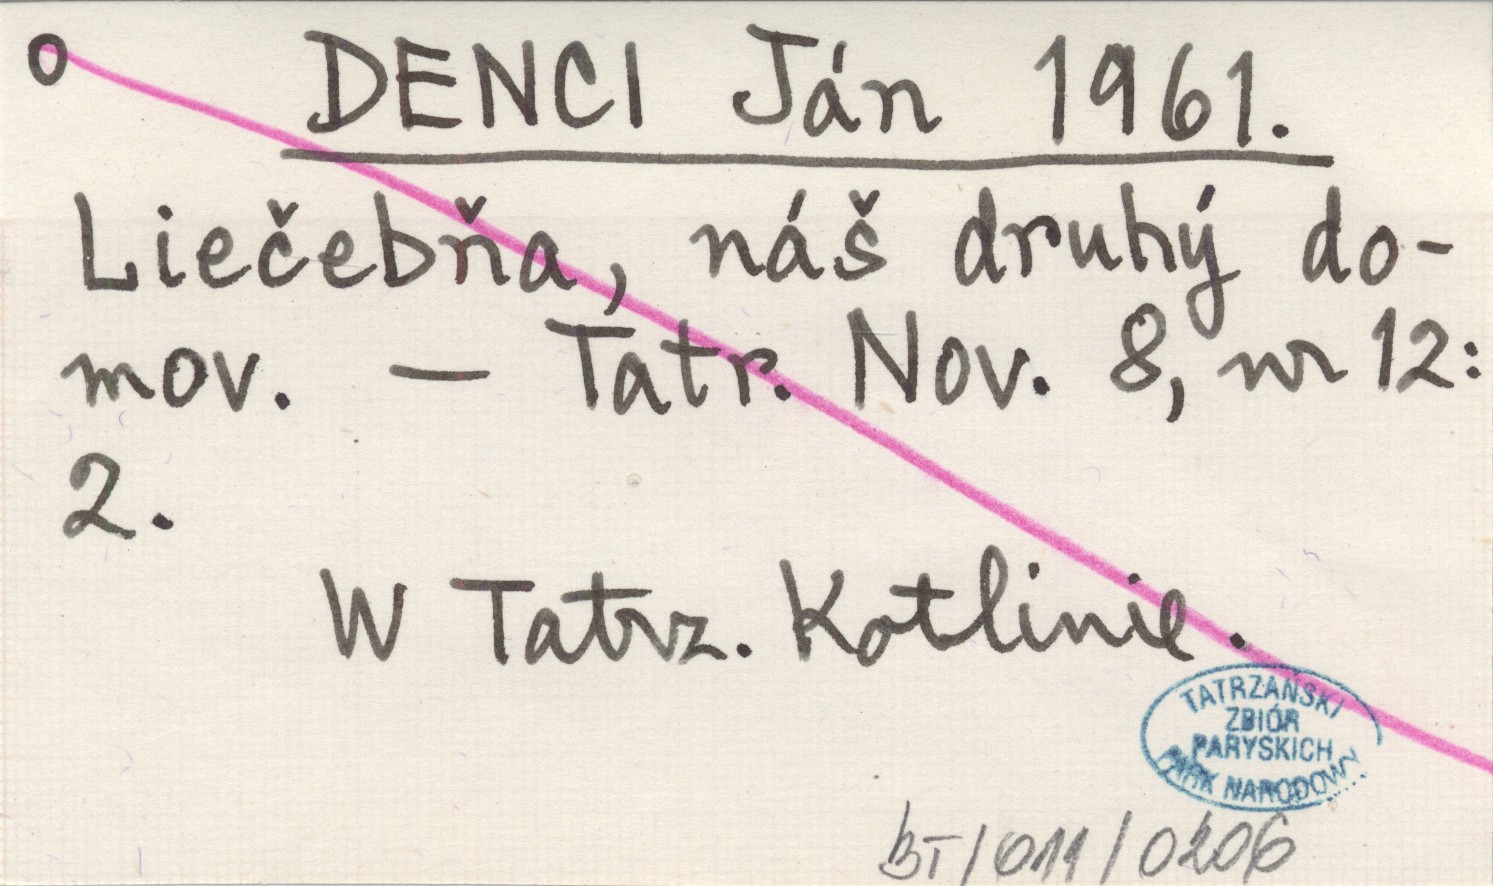 o DENCI Ján 1961.
Liečebňa, náš druhý do-
mov. — Tatr. Nov. 8, nr 12:
2.
W Tatrz. Kotlinie.
TATRZAŃSKI
ZBIÓR
PARYSKICH
PARK NARODOWY
BT/011/0206